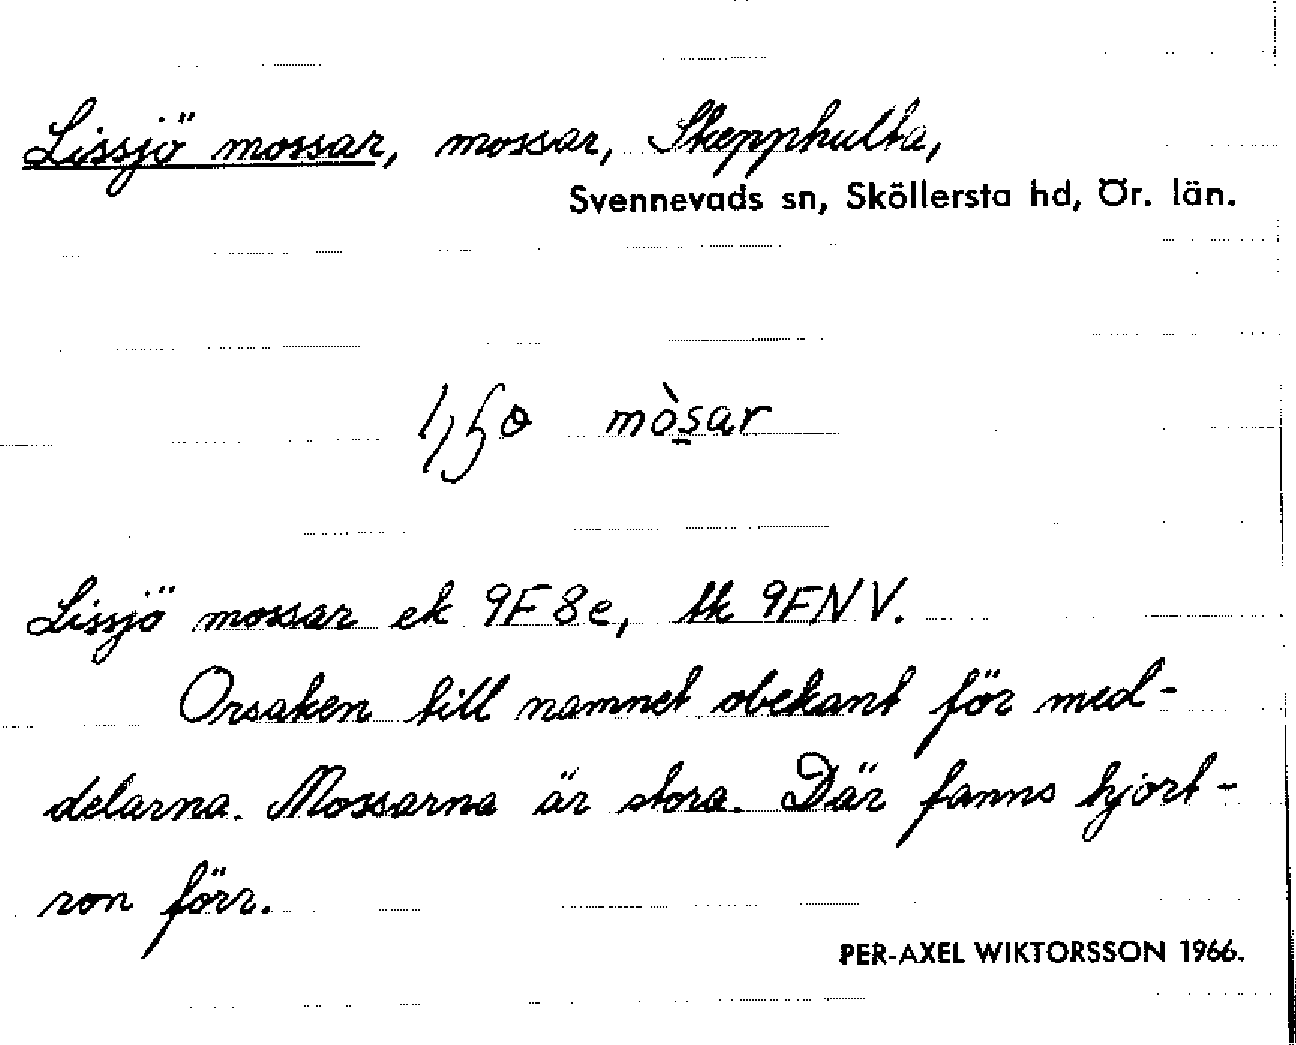 Lissjö mossar, mossar, Skepphulta,
Svennevads sn, Sköllersta hd, Ör. län.
mòsar
Lissjö mossar ek 9F8e, tk 9FNV.
Orsaken till namnet obekant för med-
delarna. Mossarna är stora. Där fanns hjort-
ron förr.
PER-AXEL WIKTORSSON 1966.